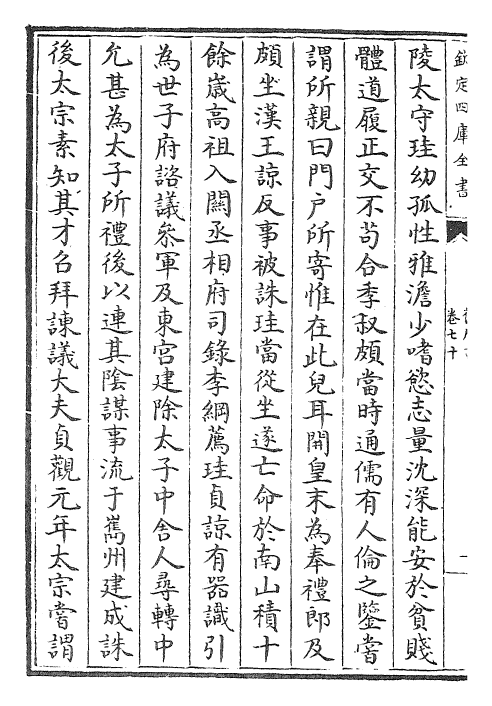 欽定四庫全書
卷七十
陵太守珪幼孤性雅澹少嗜慾志量沈深能安於貧賤
體道履正交不茍合季叔頗當時通儒有人倫之鑒嘗
謂所親曰門戶所寄惟在此兒耳開皇末為奉禮郎及
頗坐漢王諒反事被誅珪當從坐遂亡命於南山積十
餘歲高祖入關丞相府司錄李綱薦珪貞諒有器識引
為世子府諮議參軍及東宮建除太子中舍人尋轉中
允甚為太子所禮後以連其陰謀事流于雟州建成誅
後太宗素知其才召拜諫議大夫貞觀元年太宗嘗謂